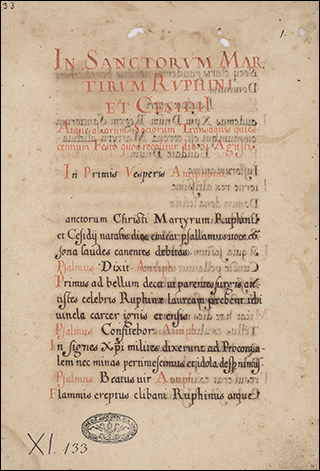 33
1.
IN SANCTORVM MAR-
TIRVM RUPHINI
ET CESIDII
Atque aliorum Sociorum
centum Festo quod
In Primis Vesperis Antiphona
anctorum Christi Martyrum Ruphini
et Cesidij natalis dies psallamus uoce co-
sona laudes canentes debitas
Psalmus Dixit Antiph
Primus ad bellum decet ut parentes
tistes celebris Ruphinæ lauream præbent tibi
uincla carcer ignis et ensis
Psalmus Confitebor
Insignes Xpi milites dixerunt ad Proconsu-
lem nec minas pertimescimus et idola despicimus
Psalmus Beatus uir Antiph
Flammis ereptus clibani Ruphinus atque
XI. 133